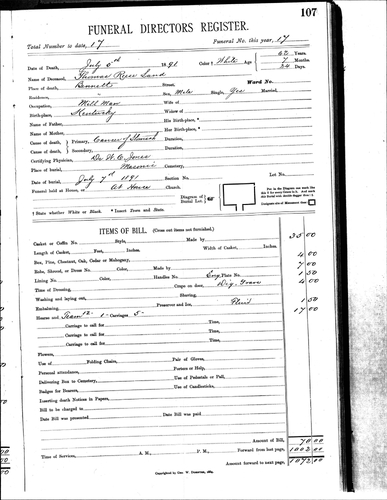 107
FUNERAL DIRECTORS REGISTER.
Total Number to date, 17 Funeral No. this year, 17
Date of Death, July 6th 1891 Color† White Age 62 Years
7 Months
24 Days
Name of Deceased, Thomas Rice Sand
Place of death, Bennett Street, Ward No.
Residence, " Sex, Male Single, Yes Married.
Occupation, Mill Man Wife of
Birth-place, Kentucky Widow of
Name of Father, His Birth-place, *
Name of Mother, Her Birth-place, *
Cause of death, Primary, Cancer of Stomach Duration,
Cause of death, Secondary, Duration,
Certifying Physician, Dr W. C. Jones
Place of burial, Masonic Cemetery,
Date of burial, July 7th 1891 Section No. Lot No.
Funeral held at House, or At House Church.
Diagram of Burial Lot.
† State whether White or Black. * Insert Town and State.
ITEMS OF BILL. (Cross out items not furnished.)
Casket or Coffin No. Style, Made by 35 00
Length of Casket, Feet, Inches. Width of Casket, Inches.
Box, Pine, Chestnut, Oak, Cedar or Mahogany, 4 00
Robe, Shroud, or Dress No. Color, Made by 7 00
Lining No. Color, Handles No. Eng. Plate No. 1 50
Time of Dressing, Crape on door, Dig. Grave 4 00
Washing and laying out, Shaving,
Embalming, Preserver and Ice, Fluid 1 50
Hearse and Team 12- 1- Carriages 5- 17 00
Carriage to call for Time,
Carriage to call for Time,
Carriage to call for Time,
Carriage to call for Time,
Flowers,
Use of Folding Chairs, Pair of Gloves,
Personal attendance, Porters or Help,
Delivering Box to Cemetery, Use of Pedestals or Pall,
Badges for Bearers, Use of Candlesticks,
Inserting death Notices in Papers,
Bill to be charged to
Date Bill was presented Date Bill was paid
Amount of Bill, 70 00
Time of Services, A. M., P. M., Forward from last page, 1002 00
Amount forward to next page, 1072 00